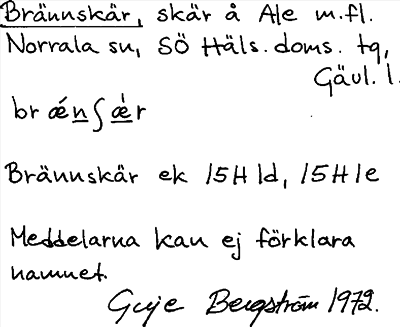 Brännskär, skär å Ale m.fl.
Norrala sn, SÖ Häls. doms. tg,
Gävl. l.
br ǽn ʃ ǽr
Brännskär ek 15H 1d, 15H 1e
Meddelarna kan ej förklara
namnet.
Bergström 1972.